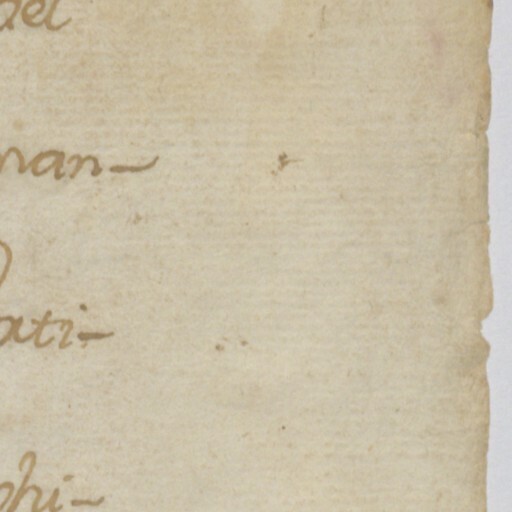 del
nan-
ati-
phi-